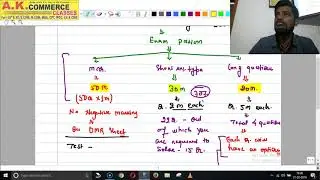 A.K. COMMERCE
CLASSES
Exam Pattern
MCQ
50 m
(50Q × 1m)
No Negative marking
On OMR Sheet
Test -
Short ans type
30 m
Q. 2 m each
22 Q. - out
of which you
are required to
solve - 15 Q.
Long questions
20 m.
Q 5 m each
Total 4 questions
Each Q. will
have an option